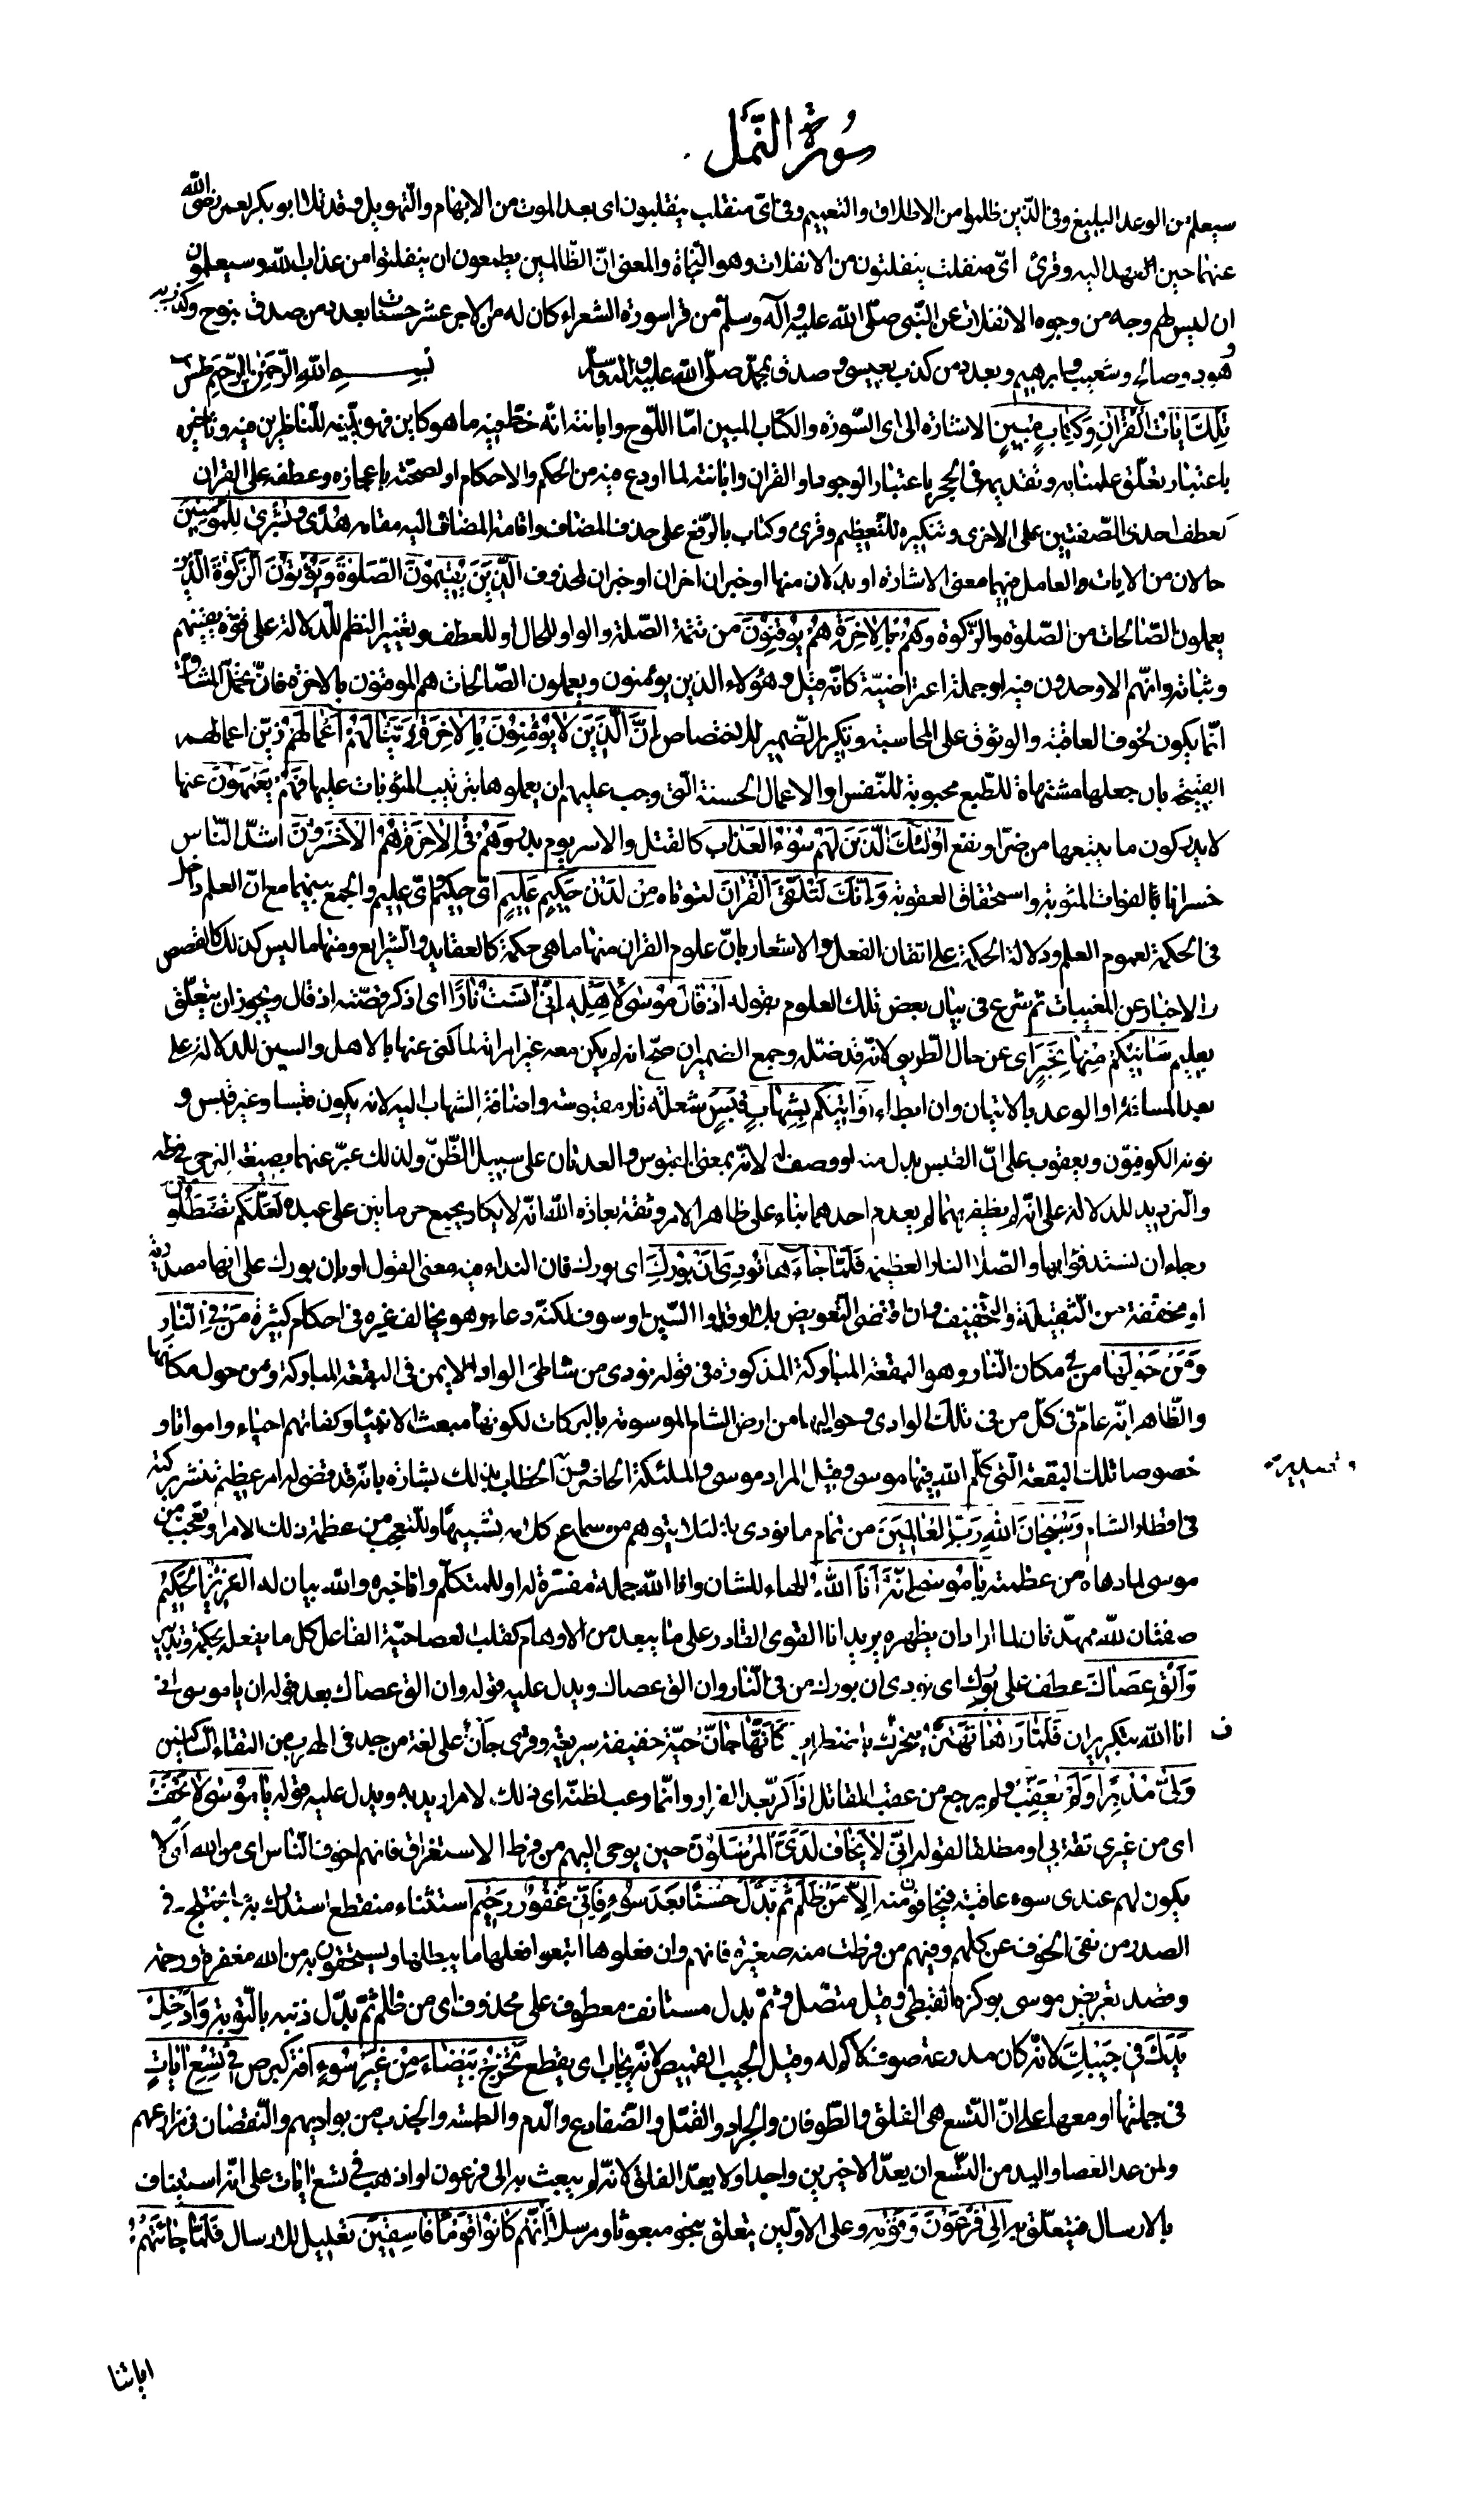 سُورةُ النَّمل
سيعلم من الوعيد البليغ وفي الّذين ظلموا من الاطلاق والتعميم وفي ايّ منقلب ينقلبون اى بعد الموت من الابهام والتّهويل وقد تلاها ابو بكر لعمر رضى الله
عنهما حين عهد اليه وقرئ اىّ منفلت ينفلتون من الانفلات وهو النّجاة والمعنى انّ الظّالمين يطمعون ان ينفلتوا من عذاب الله وسيعلمون
ان ليس لهم وجه من وجوه الانفلات عن النّبى صلّى الله عليه وآله وسلّم من قرا سورة الشعراء كان له من الاجر عشر حسنات بعدد من صدق بنوح وكذب به
وهود وصالح وشعيب وابرهيم وبعدد من كذب بعيسى وصدق بمحمّد صلّى الله عليه وآله وسلّم بسم الله الرّحمن الرّحيم طس
تِلْكَ اٰيَاتُ الْقُرْاٰنِ وَكِتَابٍ مُبِينٍ الاشارة الى اى السّورة والكتاب المبين امّا اللّوح وابانته انّه خطّ فيه ما هو كاين فهو يبيّنه للنّاظرين فيه وتاخيره
باعتبار تعلّق علمنا به وتقديمه في الحجر باعتبار الوجود او القران وابانته لما اودع فيه من الحكم والاحكام او لصحّته باعجازه وعطفه على القران
كعطف احدى الصّفتين على الاخرى وتنكيره للتّعظيم وقرئ وكتاب بالرّفع على حذف المضاف واقامة المضاف اليه مقامه هُدًى وَبُشْرىٰ لِلْمُؤْمِنِينَ
حالان من الايات والعامل فيهما معنى الاشارة او بدلان منها او خبران اخران او خبران لمحذوف الَّذِينَ يُقِيمُونَ الصَّلوٰةَ وَيُؤْتُونَ الزَّكوٰةَ الّذين
يعملون الصّالحات من الصّلوة والزّكوة وَهُمْ بِالْاٰخِرَةِ هُمْ يُوقِنُونَ من تتمّة الصّلة والواو للحال او للعطف وتغيير النظم للدّلالة على قوّة يقينهم
وثباته وانّهم الاوحدون فيه او جملة اعتراضيّة كانّه قيل وهؤلاء الذين يؤمنون ويعملون الصّالحات هم الموقنون بالاخرة فانّ تحمّل المشاقّ
انّما يكون لخوف العاقبة والوثوق على المحاسبة وتكرير الضّمير للاختصاص اِنَّ الَّذِينَ لَا يُؤْمِنُونَ بِالْاٰخِرَةِ زَيَّنَّا لَهُمْ اَعْمَالَهُمْ زيّن اعمالهم
القبيحة بان جعلها مشتهاة للطّبع محبوبة للنّفس او الاعمال الحسنة الّتى وجب عليهم ان يعملوها بترتيب المثوبات عليها فَهُمْ يَعْمَهُونَ عنها
لا يدركون ما يتبعها من ضرّ او نفع اُولٰئِكَ الَّذِينَ لَهُمْ سُوءُ الْعَذَابِ كالقتل والاسر يوم بدر وَهُمْ فِي الْاٰخِرَةِ هُمُ الْاَخْسَرُونَ اشدّ النّاس
خسرانا بالفوات المثوبة واستحقاق العقوبة وَاِنَّكَ لَتُلَقَّى الْقُرْاٰنَ لتؤتاه مِنْ لَدُنْ حَكِيمٍ عَلِيمٍ اىّ حكيم واىّ عليم والجمع بينهما مع انّ العلم داخل
في الحكمة لعموم العلم ودلالة الحكمة على اتقان الفعل والاشعار بانّ علوم القران منها ما هى حكمة كالعقايد والشّرايع ومنها ما ليس كذلك كالقصص
والاخبار عن المغيبات ثم شرع في بيان بعض تلك العلوم بقوله اِذْ قَالَ مُوسىٰ لِاَهْلِهِ اِنِّي اٰنَسْتُ نَارًا اى اذكر قصّته اذ قال ويجوز ان يتعلّق
بعليم سَاٰتِيكُمْ مِنْهَا بِخَبَرٍ اى عن حال الطّريق لانّه قد ضلّه وجمع الضمير ان صحّ انه لم يكن معه غير امراته لما كنى عنها بالاهل والسين للدلالة على
بعد المسافة او الوعد بالاتيان وان ابطاء اَوْ اٰتِيكُمْ بِشِهَابٍ قَبَسٍ شعلة نار مقبوسة واضافة الشهاب اليه لانه يكون قبسا وغير قبس و
نونه الكوفيّون ويعقوب على انّ القبس بدل منه او وصف له لانّه بمعنى المقبوس والعدتان على سبيل الظّنّ ولذلك عبّر عنهما بصيغة الترجى في طه
والترديد للدلالة على انّه لم يظفر بهما لم يعدم احدهما بناء على ظاهر الامر وثقة بعادة الله انّه لا يكاد يجمع حرمانين على عبده لَعَلَّكُمْ تَصْطَلُونَ
رجاء ان تستدفئوا بها والصّلاء النار العظيمة فَلَمَّا جَاءَهَا نُودِيَ اَنْ بُورِكَ اى بورك فان النداء فيه معنى القول او بان بورك على انها مصدريّة
او مخفّفة من الثّقيلة والتّخفيف وان اقتضى التّعويض بلا او قد او السّين او سوف لكنّه دعاء وهو يخالف غيره في احكام كثيرة مَنْ فِي النَّارِ
وَمَنْ حَوْلَهَا من في مكان النّار وهو البقعة المباركة المذكورة في قوله نودى من شاطئ الواد الايمن في البقعة المباركة ومن حول مكانها
والظّاهر انّه عامّ في كلّ من في تلك الوادى وحواليها من ارض الشام الموسومة بالبركات لكونها مبعث الانبياء وكفاتهم احياء وامواتا و
خصوصا تلك البقعة الّتى كلّم الله فيها موسى وقيل المراد موسى والملئكة الحاضرون وتصدير الخطاب بذلك بشارة بانّه قد قضى له امر عظيم تنتشر بركته
في اقطار الشام وَسُبْحَانَ اللهِ رَبِّ الْعَالَمِينَ من تمام ما نودى به لئلا يتوهم من سماع كلامه تشبيها وللتّعجيب من عظمة ذلك الامر او تعجّب من
موسى لما دهاه من عظمته يَا مُوسىٰ اِنَّهُ اَنَا اللهُ الهاء للشان وانا الله جملة مفسّرة له او للمتكلّم وانا خبره والله بيان له الْعَزِيزُ الْحَكِيمُ
صفتان لله ممهّدتان لما اراد ان يظهره يريد انا القوى القادر على ما يبعد من الاوهام كقلب العصا حيّة الفاعل كل ما يفعله بحكمة وتدبير
وَاَلْقِ عَصَاكَ عطف على بُورِكَ اى نودى ان بورك من في النّار وان الق عصاك ويدل عليه قوله وان الق عصاك بعد قوله ان يا موسى انى
انا الله بتكرير ان فَلَمَّا رَاٰهَا تَهْتَزُّ تتحرّك باضطراب كَاَنَّهَا جَانٌّ حيّة خفيفة سريعة وقرئ جأنّ على لغة من جد في الهرب من التقاء السّاكنين
وَلّٰى مُدْبِرًا وَلَمْ يُعَقِّبْ ولم يرجع من عقب المقاتل اذا كرّ بعد الفرار وانّما رعب لظنّه ان ذلك لامر اريد به ويدل عليه قوله يَا مُوسىٰ لَا تَخَفْ
اى من غيرى ثقة بى او مطلقا لقوله اِنِّي لَا يَخَافُ لَدَيَّ الْمُرْسَلُونَ حين يوحى اليهم من فرط الاستغراق فانهم اخوف النّاس اى من الله او لا
يكون لهم عندى سوء عاقبة فيخافون منه اِلَّا مَنْ ظَلَمَ ثُمَّ بَدَّلَ حُسْنًا بَعْدَ سُوءٍ فَاِنِّي غَفُورٌ رَحِيمٌ استثناء منقطع استدرك به ما يختلج في
الصدر من نفى الخوف عن كلهم وفيهم من فرطت منه صغيرة فانهم وان فعلوها اتبعوا فعلها ما يبطلها ويستحقون به من الله مغفرة ورحمة
وقصد تعريض موسى بوكزه القبطى وقيل متّصل وثمّ بدل مستانف معطوف على محذوف اى من ظلم ثمّ بدّل ذنبه بالتّوبة وَاَدْخِلْ
يَدَكَ فِي جَيْبِكَ لانّه كان مدرعة صوف لا كمّ له وقيل الجيب القميص لانّه يجاب اى يقطع تَخْرُجْ بَيْضَاءَ مِنْ غَيْرِ سُوءٍ افة كبرص فِي تِسْعِ اٰيَاتٍ
في جملتها او معها على انّ التّسع هى الفلق والطّوفان والجراد والقمّل والضّفادع والدم والطمسة والجدب من بواديهم والنّقصان في مزارعهم
ولمن عد العصا واليد من التّسع ان يعدّ الاخيرين واحدا ولا يعدّ الفلق لانّه لم يبعث به الى فرعون او اذهب في تسع ايات على انّه استيناف
بالارسال فيتعلّق به اِلىٰ فِرْعَوْنَ وَقَوْمِهِ وعلى الاوّلين يتعلق بنحو مبعوثا ومرسلا اِنَّهُمْ كَانُوا قَوْمًا فَاسِقِينَ تعليل للارسال فَلَمَّا جَاءَتْهُمْ
اياتنا